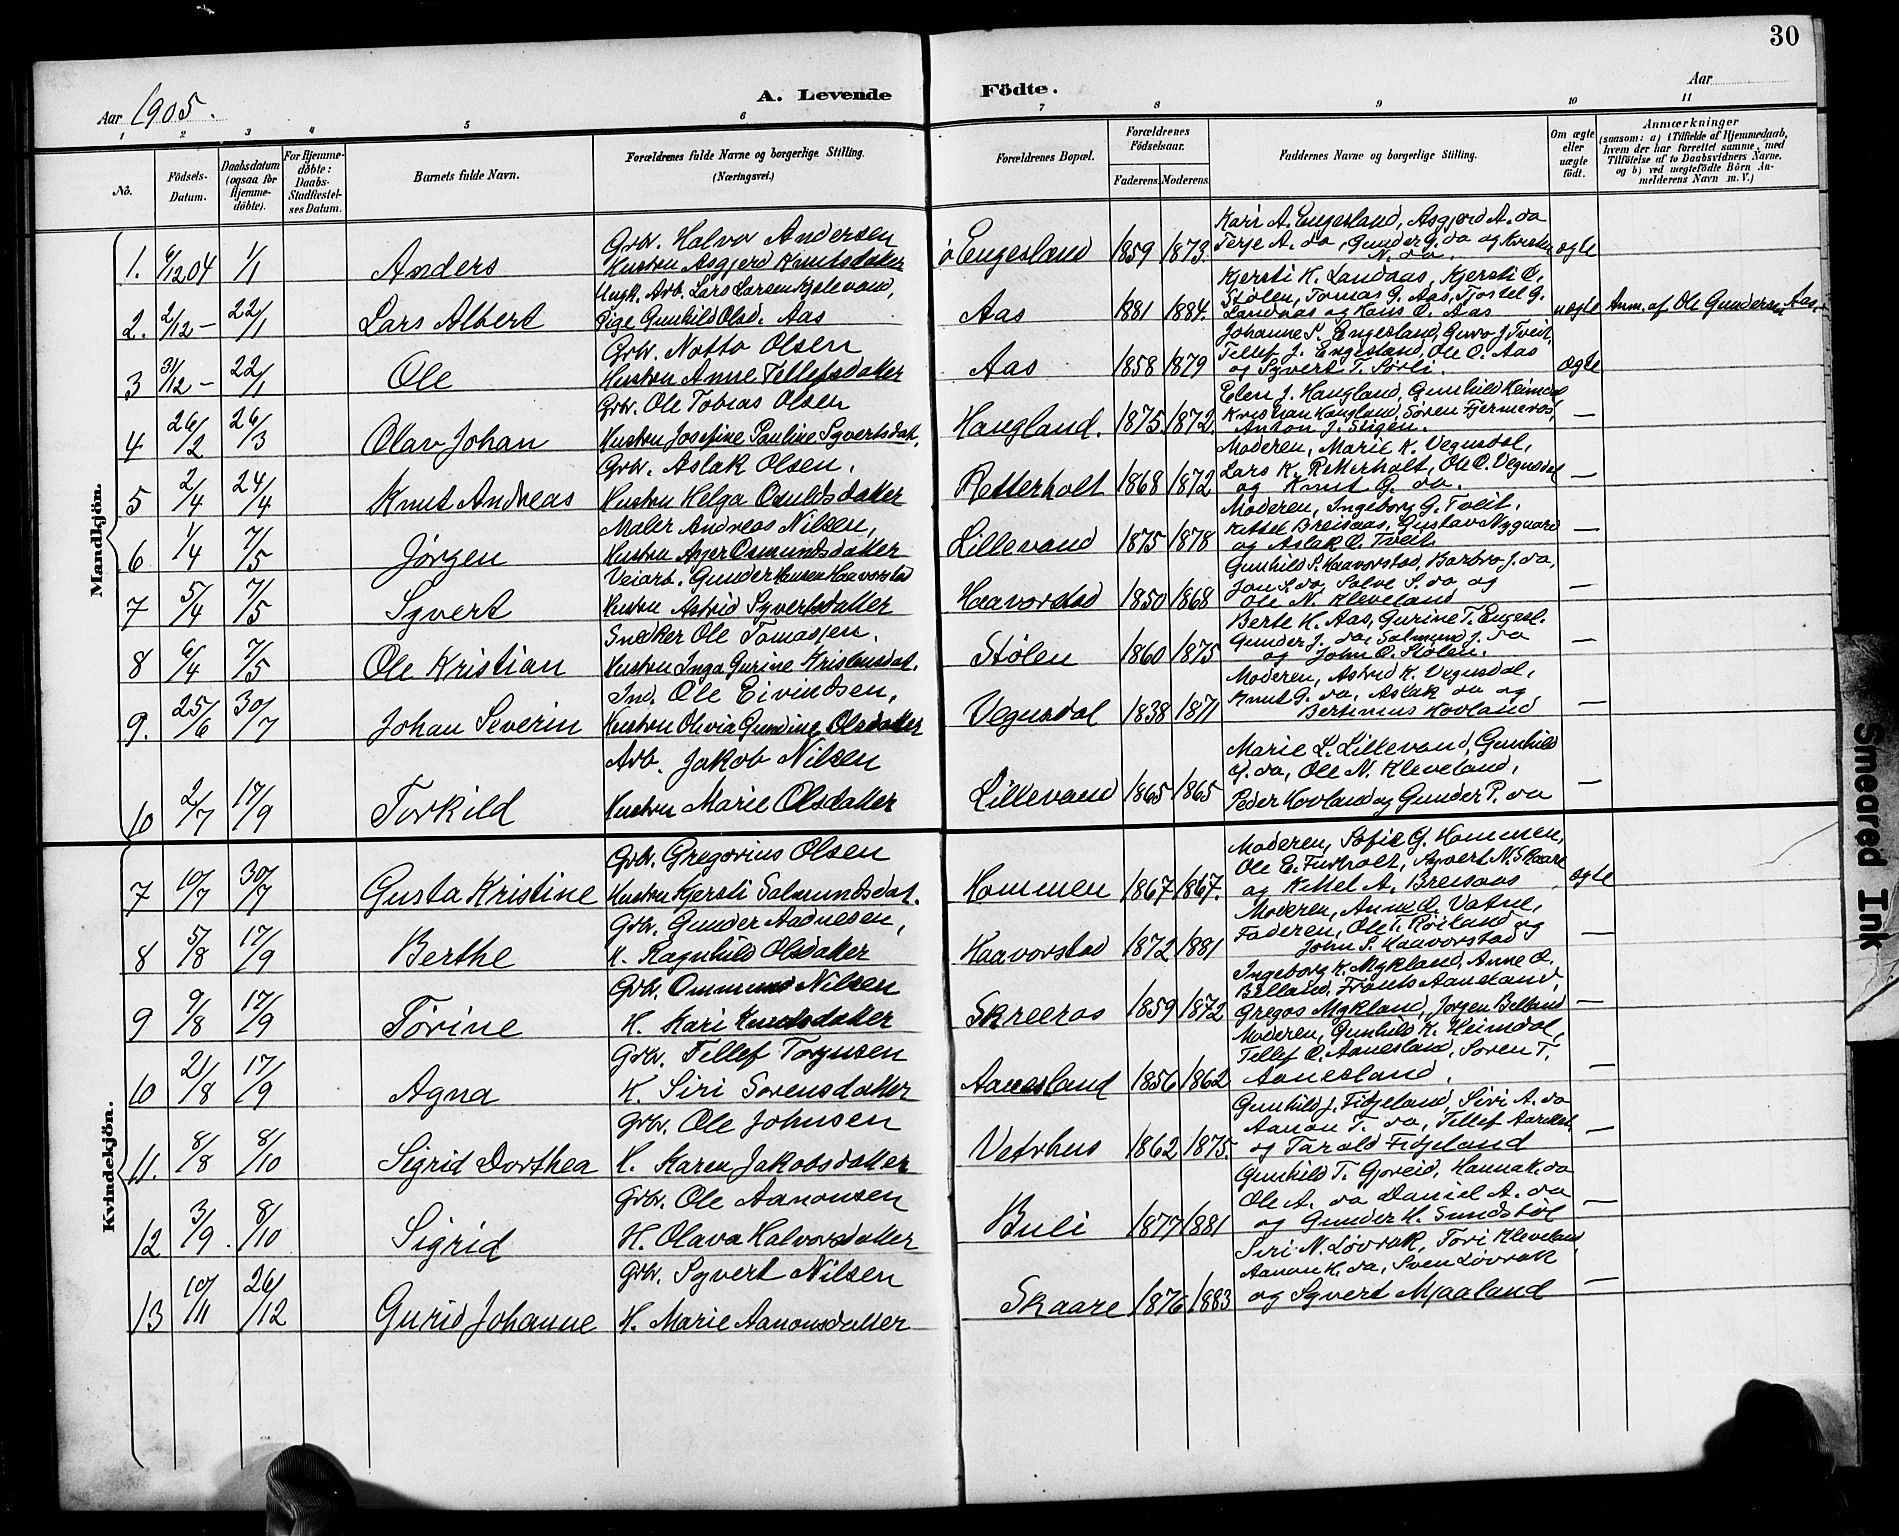 30
Aar 1905.
A. Levende Födte.
Aar
1 2 3 4 5 6 7 8 9 10 11
No.
Födsels-Datum.
Daabsdatum (ogsaa for Hjemme-döbte).
For Hjemme-döbte: Daabs-Stadfæstel-ses Datum.
Barnets fulde Navn.
Forældrenes fulde Navne og borgerlige Stilling.
(Næringsvei.)
Forældrenes Bopæl.
Forældrenes Födselsaar.
Faderens. Moderens.
Faddernes Navne og borgerlige Stilling.
Om ægte eller uægte födt.
Anmærkninger
(saasom: a) i Tilfælde af Hjemmedaab, hvem der har forrettet samme, med Tilföielse af to Daabsvidners Navne, og b) ved uægtefödte Börn An-melderens Navn m. V.)
Mandkjön.
1. 6/12 04 1/1 Anders
Grbr. Halvor Andersen
Hustru Asgjerd Knutsdatter
Engesland 1859 1873.
Kari A. Engesland, Asgjerd A. do
Terje A. do, Gunder G. do og Kristen
N. do.
ægte
2. 2/12 – 22/1 Lars Albert
Ungk. Arb. Lars Larsen Kjelevand,
Pige Gunhild Olsd. Aas
Aas 1881 1884.
Kjersti K. Landaas, Kjersti O.
Stølen, Tomas G. Aas, Tjostel G.
Landaas og Hans O. Aas
uægte
Anm. af Ole Gundersen Aas.
3 31/12 – 22/1 Ole
Grbr. Notto Olsen
Hustru Anne Tellefsdatter
Aas 1858 1879
Johanne S. Engesland, Guro J. Tveit,
Tellef J. Engesland, Ole O. Aas
og Syvert T. Sørli.
ægte
4 26/2 26/3 Olav Johan
Grbr. Ole Tobias Olsen
Hustru Josefine Pauline Syvertsdat.
Haugland. 1875 1872.
Elen J. Haugland, Gunhild Heimdal
Kristian Haugland, Søren Fjermeros,
Anton J. Stigen.
—
5 2/4 24/4 Knut Andreas
Grbr. Aslak Olsen.
Hustru Helga Osuldsdatter
Retterholt 1868 1872
Moderen, Marie K. Vegusdal,
Lars K. Retterholt, Ole O. Vegusdal
og Knut G. do.
—
6 1/4 7/5 Jørgen
Maler Andreas Nilsen,
Hustru Asger Osmundsdatter
Lillevand 1875 1878
Moderen, Ingeborg G. Tveit,
Kittel Breisaas, Gustav Nygaard
og Aslak O. Tveit.
—
7 5/4 7/5 Syvert
Veiarb. Gunder Hansen Haavorstad
Hustru Astrid Syvertsdatter
Haavorstad 1850 1868
Gunhild S. Haavorstad, Barbro J. do,
Jon S. do, Salve S. do og
Ole N. Kleveland
—
8 6/4 7/5 Ole Kristian
Snedker Ole Tomassen.
Hustru Inga Gurine Kristensdat.
Stølen 1860 1875
Berte H. Aas, Gurine T. Engesl.
Gunder J. do, Salmund J. do
og John O. Stølen.
—
9. 25/6 30/7 Johan Severin
Ind. Ole Eivindsen,
Hustru Olivia Gundine Olsdatter
Vegusdal 1838 1871
Moderen, Astrid K. Vegusdal,
Knut G. do, Aslak do og
Bertinius Hovland
—
10 2/7 17/9 Torkild
Arb. Jakob Nilsen
Hustru Marie Olsdatter
Lillevand 1865 1865
Marie L. Lillevand, Gunhild
J. do, Ole N. Kleveland,
Peder Hovland og Gunder P. do
—
Kvindekjön.
7 10/7 30/7 Gusta Kristine
Grbr. Gregorius Olsen
Hustru Kjersti Salmundsdat.
Hommen 1867 1867.
Moderen, Sofie G. Hommen,
Ole E. Furholt, Syvert N. Skaare
og Kittel A. Breisaas
ægte
8 5/8 17/9 Berthe
Grbr. Gunder Aadnesen,
H. Ragnhild Olsdatter
Haavorstad 1872 1881
Moderen, Anne O. Vatne,
Faderen, Ole T. Røiland og
John S. Haavorstad
—
9 9/8 17/9 Tørine
Grbr. Ommund Nilsen
H. Kari Knutsdatter
Skreeros 1859 1872
Ingeborg K. Mykland, Anne O.
Belland, Frants Aaneland,
Gregos Mykland, Jørgen Belland
—
10 21/8 17/9 Agna
Grbr. Tellef Torjusen
H. Siri Sørensdatter
Aanesland 1856 1862
Moderen, Gunhild K. Heimdal,
Tellef O. Aanesland, Søren T.
Aanesland.
—
11. 8/8 8/10 Sigrid Dorthea
Grbr. Ole Johnsen
H. Karen Jakobsdatter
Vetrhus 1862 1875.
Gunhild J. Fidjeland, Siri A. do
Aanon T. do, Tellef
og Tarald Fidjeland
—
12 3/9 8/10 Sigrid
Grbr. Ole Aanonsen
H. Olava Halvorsdatter
Buli 1877 1881
Gunhild T. Gjøveid, Hanna K. do
Ole A. do Daniel A. do
og Gunder H. Sundstøl
—
13 10/11 26/12 Gurid Johanne
Grbr. Syvert Nilsen
H. Marie Aanonsdatter
Skaare 1876 1883
Siri N. Løvrak, Tori Kleveland,
Aanon H. do, Sven Løvrak
og Syvert Mjaaland
—
Smeared Ink